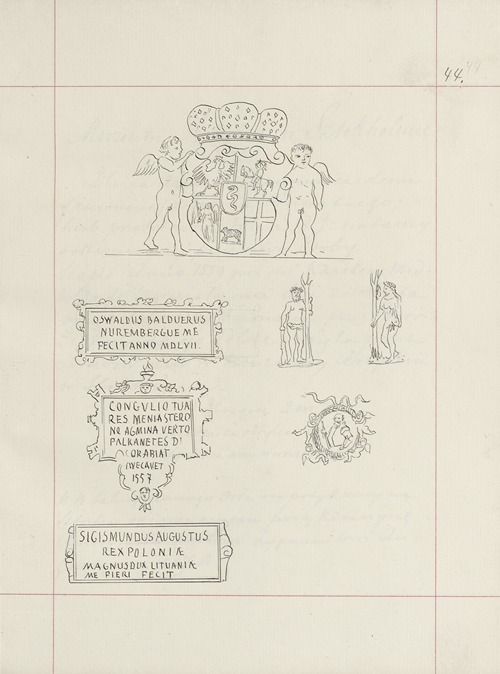 44.
OSWALDUS BALDUERUS
NUREMBERGUE ME
FECIT ANNO MDLVII.
CONGVLIO TUA
RES MENIASTERO
NR AGMINA VERTO
PALKANETES D'
ORABIAT
IVECAVET
1557
SIGISMUNDUS AUGUSTUS
REX POLONIÆ
MAGNUS DUX LITUANIÆ
ME FIERI FECIT